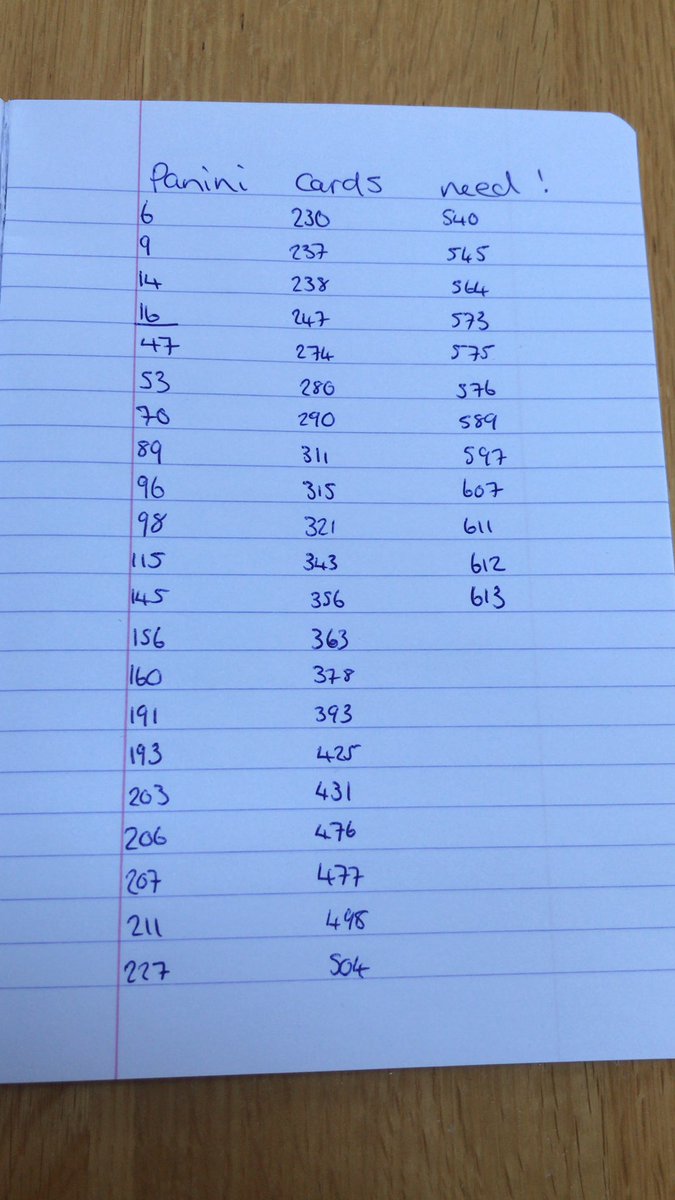 Panini cards need!
6 230 540
9 237 545
14 238 564
16 247 573
47 274 575
53 280 576
70 290 589
89 311 597
96 315 607
98 321 611
115 343 612
145 356 613
156 363
160 378
191 393
193 425
203 431
206 476
207 477
211 498
227 504